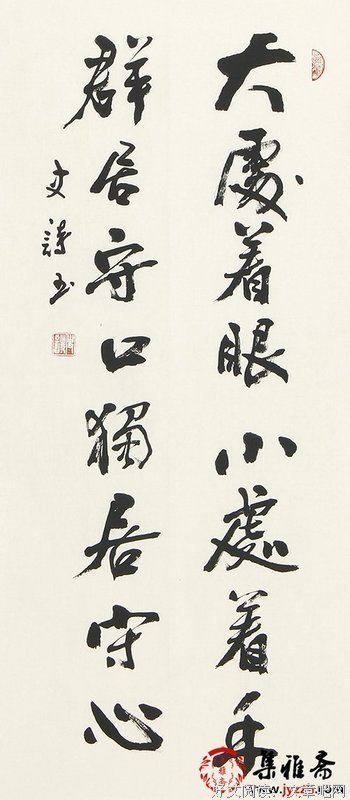 大處着眼小處着手
群居守口獨居守心
集雅斋